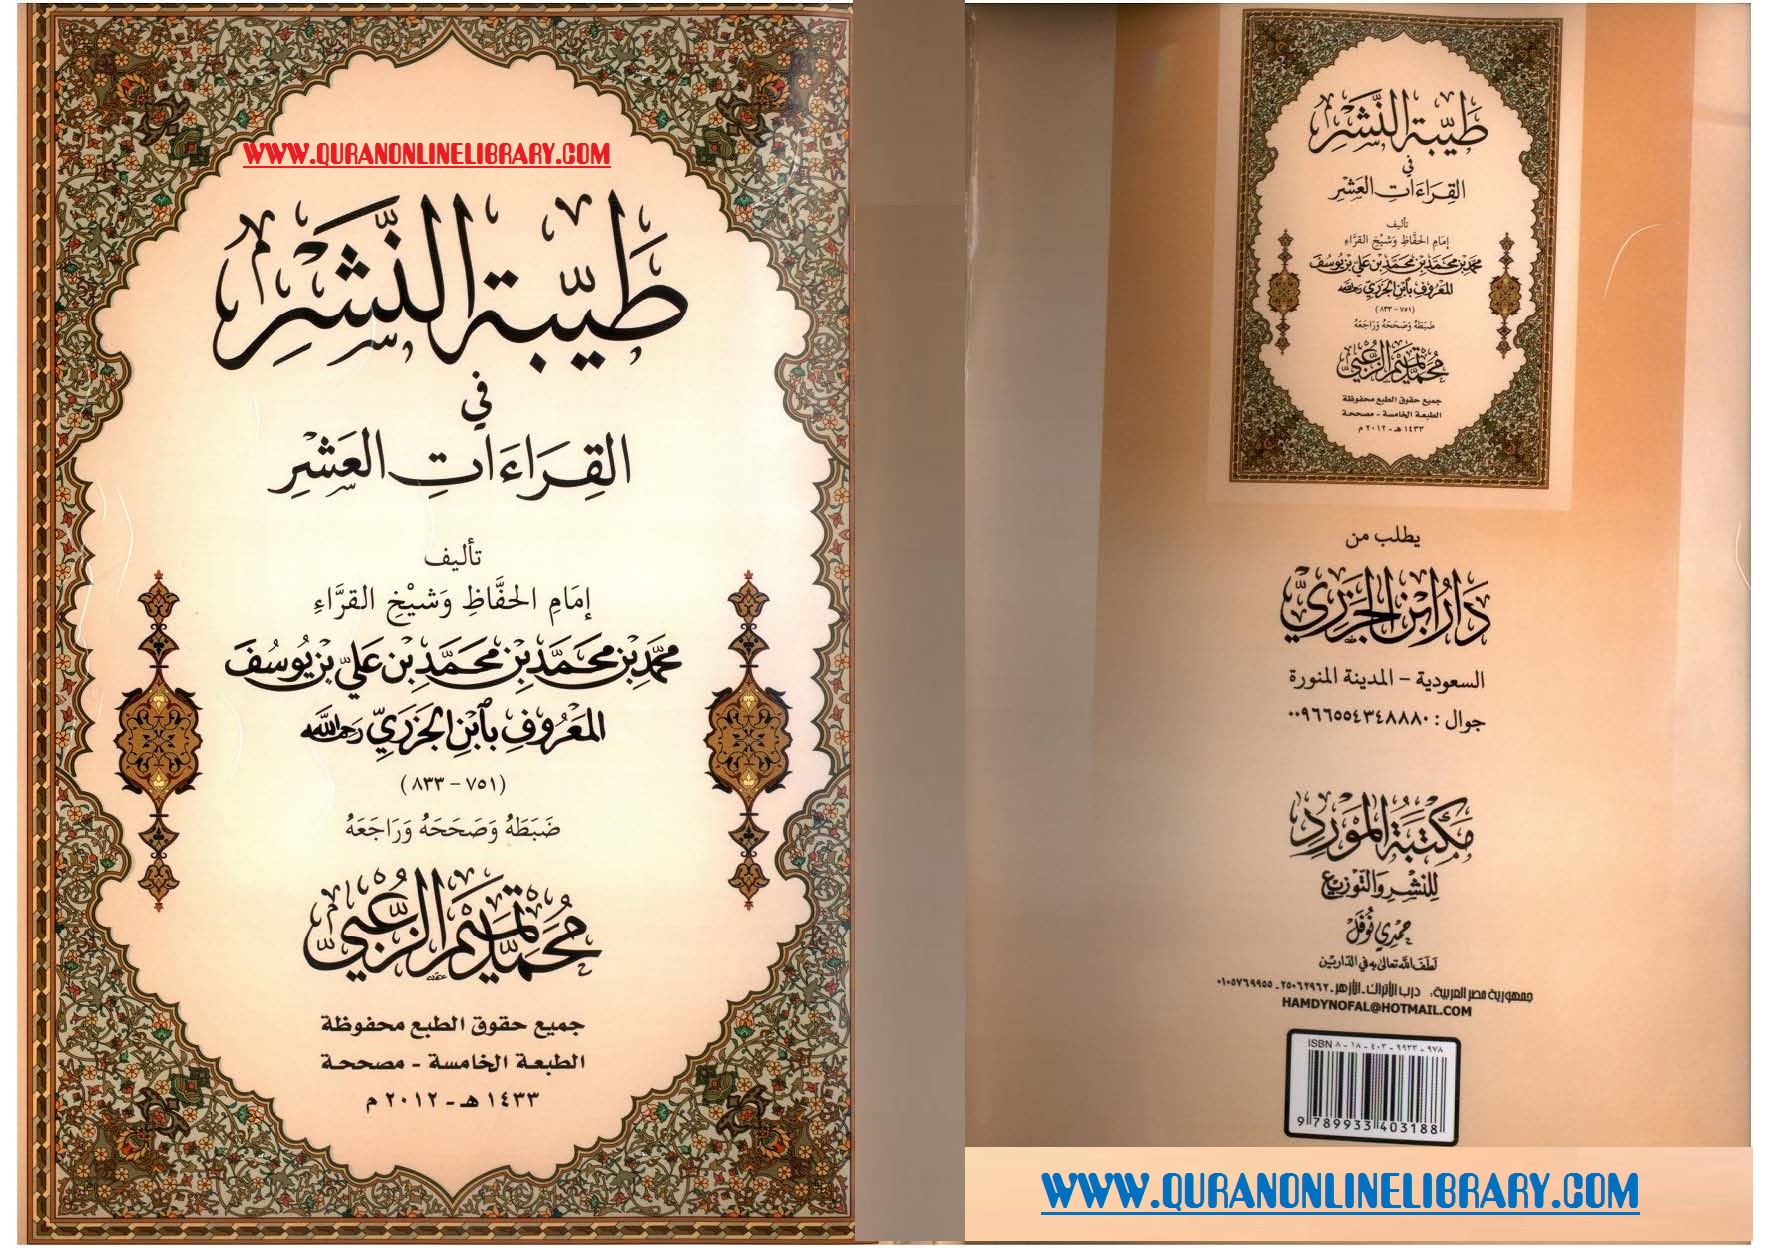 WWW.QURANONLINELIBRARY.COM
طَيِّبَةُ النَّشْرِ
فِي
القِرَاءَاتِ العَشْرِ
تأليف
إِمَامِ الحفَّاظِ وَشَيْخِ القرَّاءِ
محمَّد بْن محَمَّد بْن محَمَّد بْن عَلِيّ بْن يُوسُفَ
المَعْرُوفِ بِٱبْنِ الجَزَرِيّ رَحِمَهُ اللَّه
(٧٥١ – ٨٣٣)
ضَبَطَهُ وَصَحَحَهُ وَرَاجَعَهُ
مُحَمَّد تَمِيم الزُّعْبِيّ
جميع حقوق الطبع محفوظة
الطبعة الخامسة - مصححة
١٤٣٣ هـ - ٢٠١٢ م
طَيِّبَةُ النَّشْرِ
فِي
القِرَاءَاتِ العَشْرِ
تأليف
إِمَامِ الحفَّاظِ وَشَيْخِ القرَّاءِ
محمَّد بْن محَمَّد بْن محَمَّد بْن عَلِيّ بْن يُوسُفَ
المَعْرُوفِ بِٱبْنِ الجَزَرِيّ رَحِمَهُ اللَّه
(٧٥١ – ٨٣٣)
ضَبَطَهُ وَصَحَحَهُ وَرَاجَعَهُ
مُحَمَّد تَمِيم الزُّعْبِيّ
جميع حقوق الطبع محفوظة
الطبعة الخامسة - مصححة
١٤٣٣ هـ - ٢٠١٢ م
يطلب من
دَارُ ابْنِ الجَزَرِيِّ
السعودية - المدينة المنورة
جوال : ٠٠٩٦٦٥٥٤٣٤٨٨٨٠
مَكْتَبَةُ المَوْرِدِ
لِلنَّشْرِ وَالتَّوْزِيعِ
حَمْدِي نُوفَل
لَطَفَ اللَّه تعالى به في الدَّارين
جمهورية مصر العربية: درب الأتراك - الأزهر - ٢٥٠٦٢٩٦٢ - ٠١٠٥٧٦٩٩٥٥
HAMDYNOFAL@HOTMAIL.COM
ISBN ٩٧٨ - ٩٩٣٣ - ٤٠٣ - ١٨ - ٨
9 789933 403188
WWW.QURANONLINELIBRARY.COM